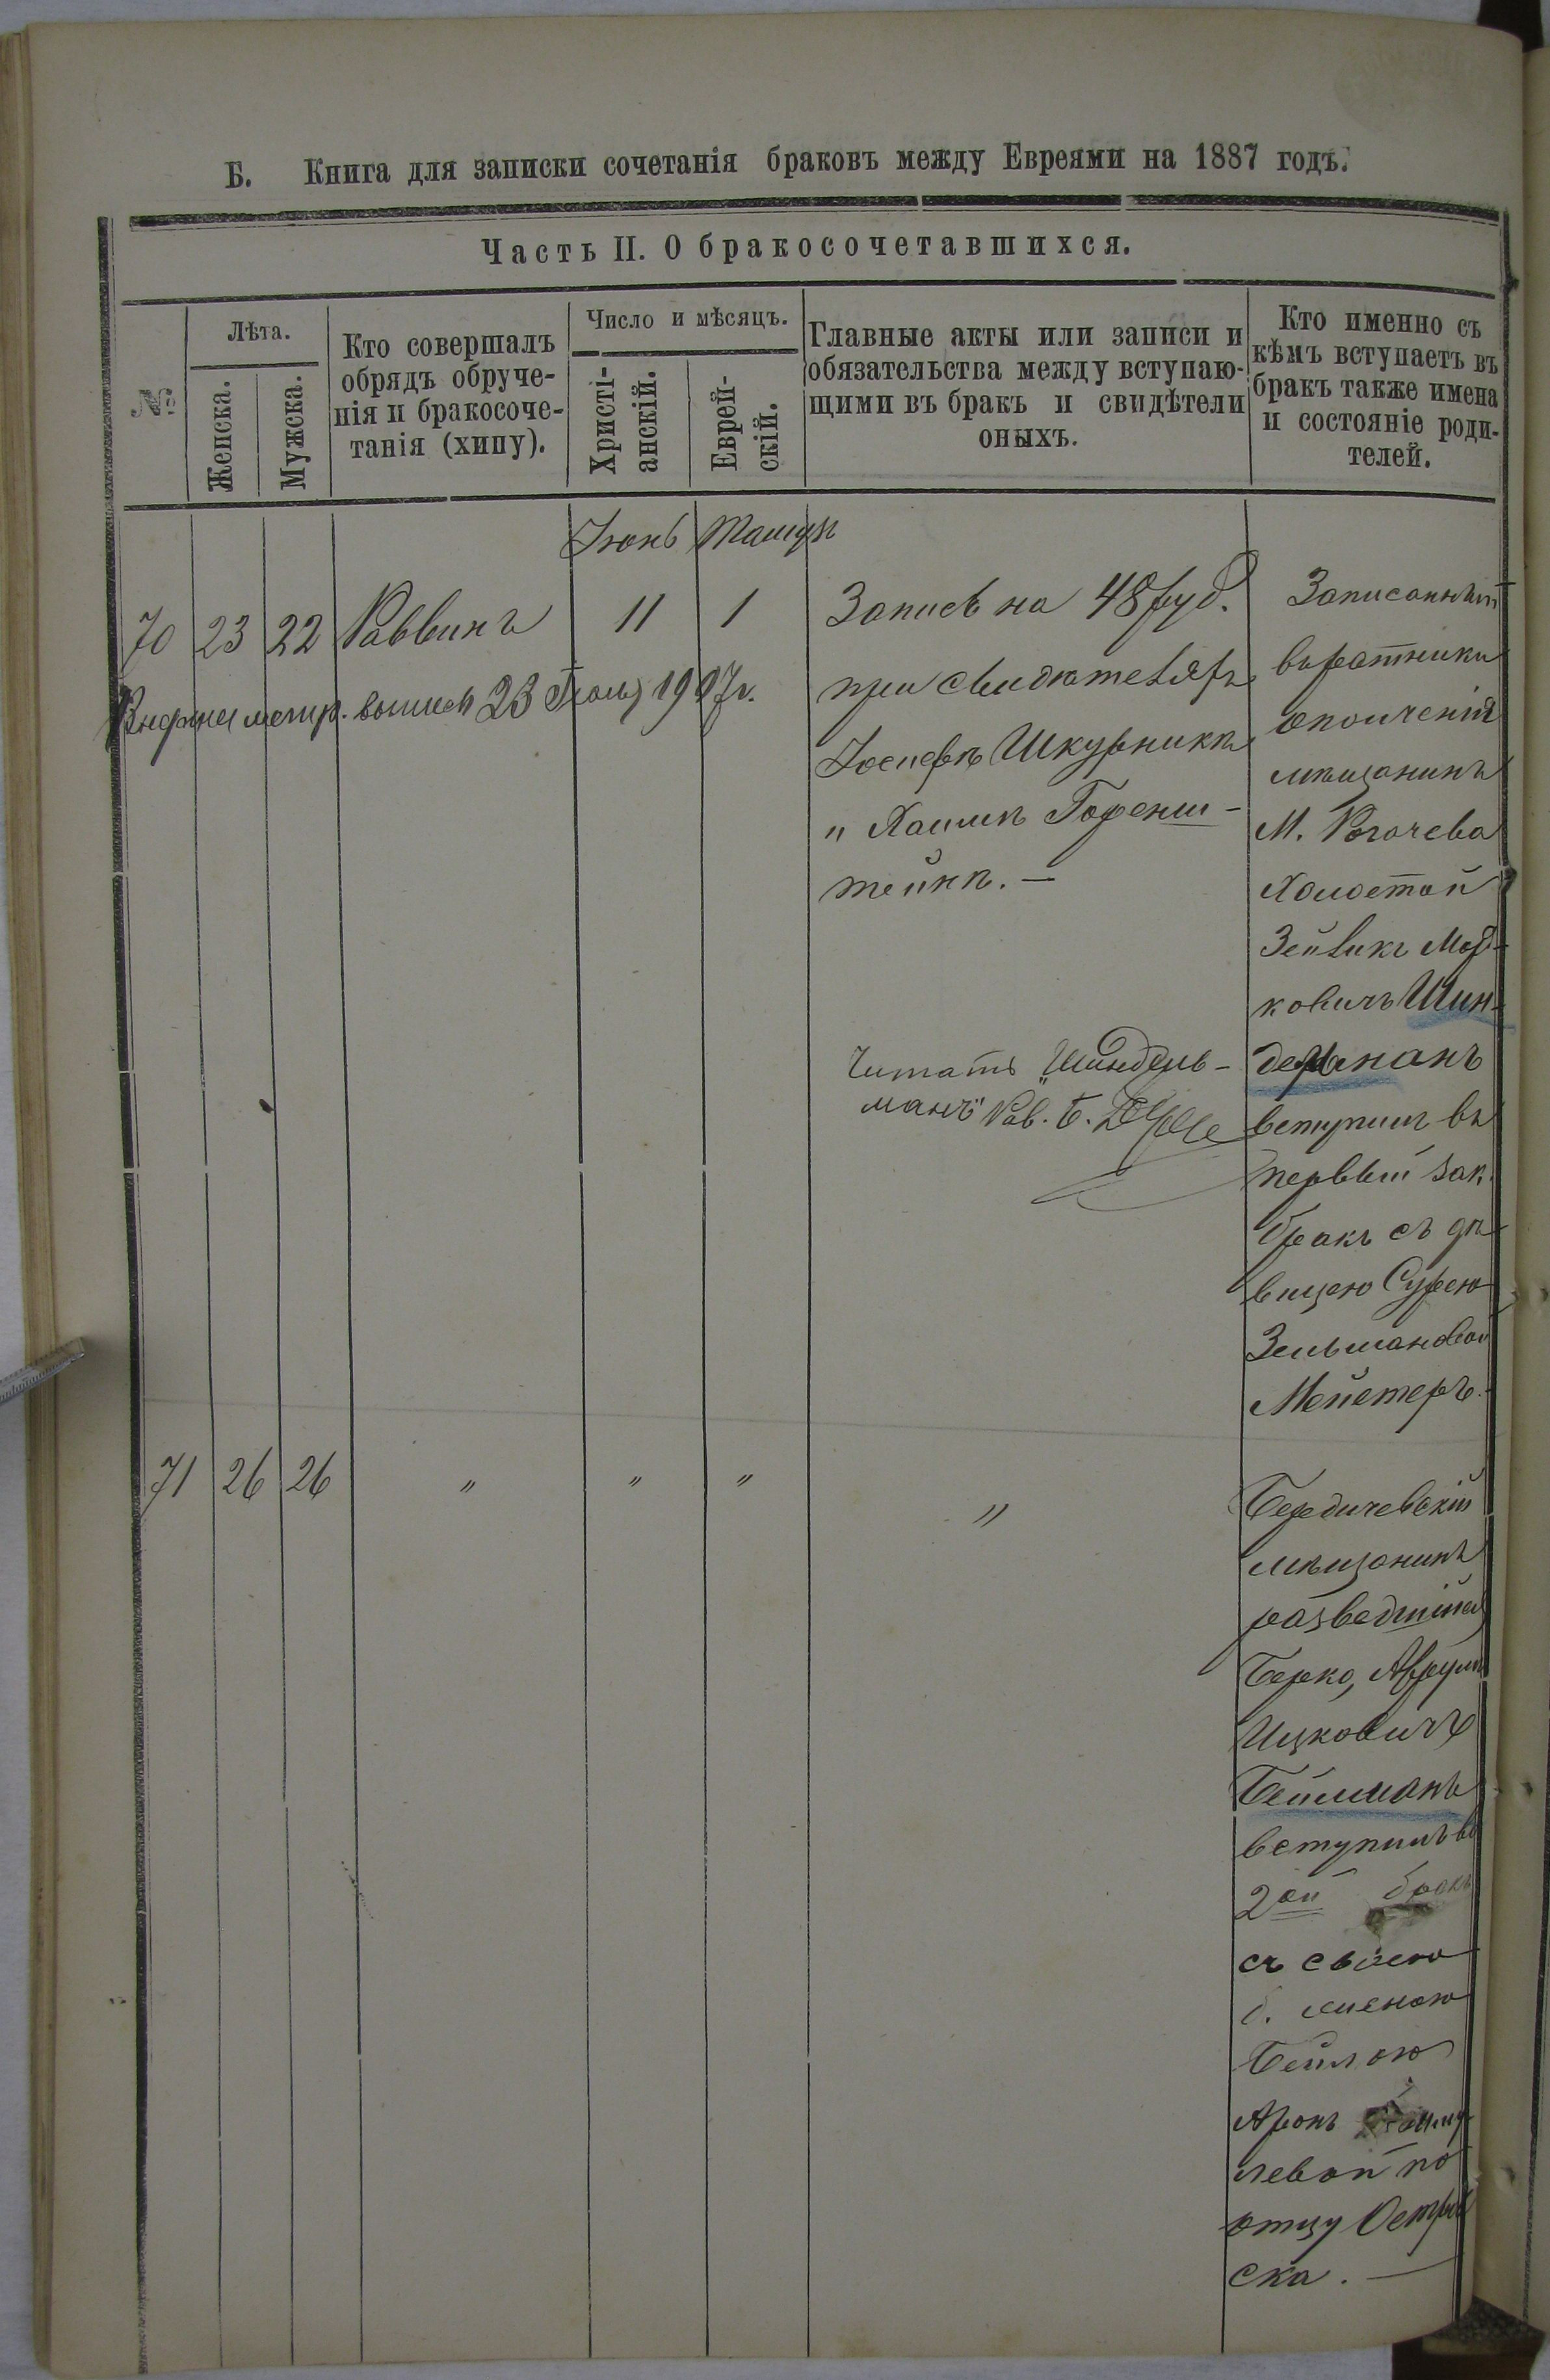 Б. Книга для записки сочетанія браковъ между Евреями на 1887 годъ.
Часть II. О бракосочетавшихся.
№
Лѣта.
Женска.
Мужска.
Кто совершалъ
обрядъ обруче-
нія и бракосоче-
танія (хипу).
Число и мѣсяцъ.
Христі-
анскій.
Еврей-
скій.
Главные акты или записи и
обязательства между вступаю-
щими въ бракъ и свидѣтели
оныхъ.
Кто именно съ
кѣмъ вступаетъ въ
бракъ также имена
и состояніе роди-
телей.
Іюнь Тамузъ
70 23 22 Раввинъ 11 1
метр. выпись 23 Іюля 1907 г.
Запись на 48 руб.
при свидѣтеляхъ
Іосифъ Шкурникъ
" Хаимъ Горенш-
тейнъ. —
Читать "Шиндель-
манъ" Рав. Б.
Записанный
въ ратники
ополченія
мѣщанинъ
М. Рогачева
Холостой
Зейликъ Мор-
ковичъ Шин-
дельманъ
вступилъ въ
первый зак.
бракъ съ дѣ-
вицею Сурею
Зельмановой
Мейстеръ.
71 26 26 " " " "
Бердичевскій
мѣщанинъ
разведшійся
Берко, Аврумъ
Ицковичъ
Бейлманъ
вступилъ въ
2ой бракъ
съ своею
б. женою
Бейлою
Аронъ
левой по
отцу Остров
ска. —